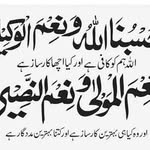 حسبنا الله ونعم الوكيل
اللہ ہم کو کافی ہے اور کیا اچھا کارساز ہے
نعم المولى ونعم النصير
اور وہ کیا ہی بہترین کارساز ہے اور کتنا بہترین مددگار ہے